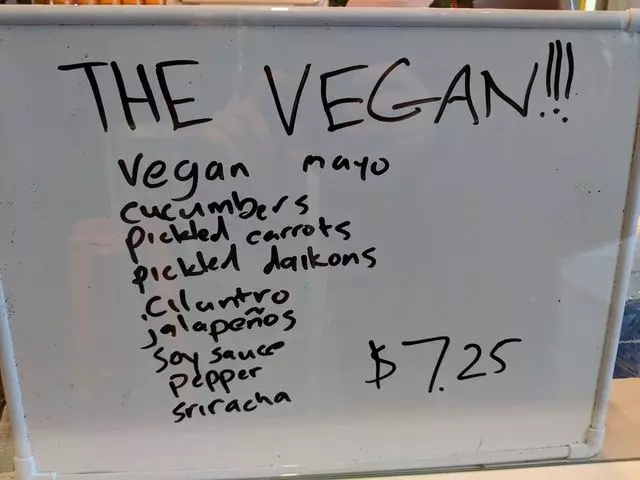 THE VEGAN!!!
vegan mayo
cucumbers
pickled carrots
pickled daikons
cilantro
jalapeños
soy sauce
pepper
sriracha
$7.25